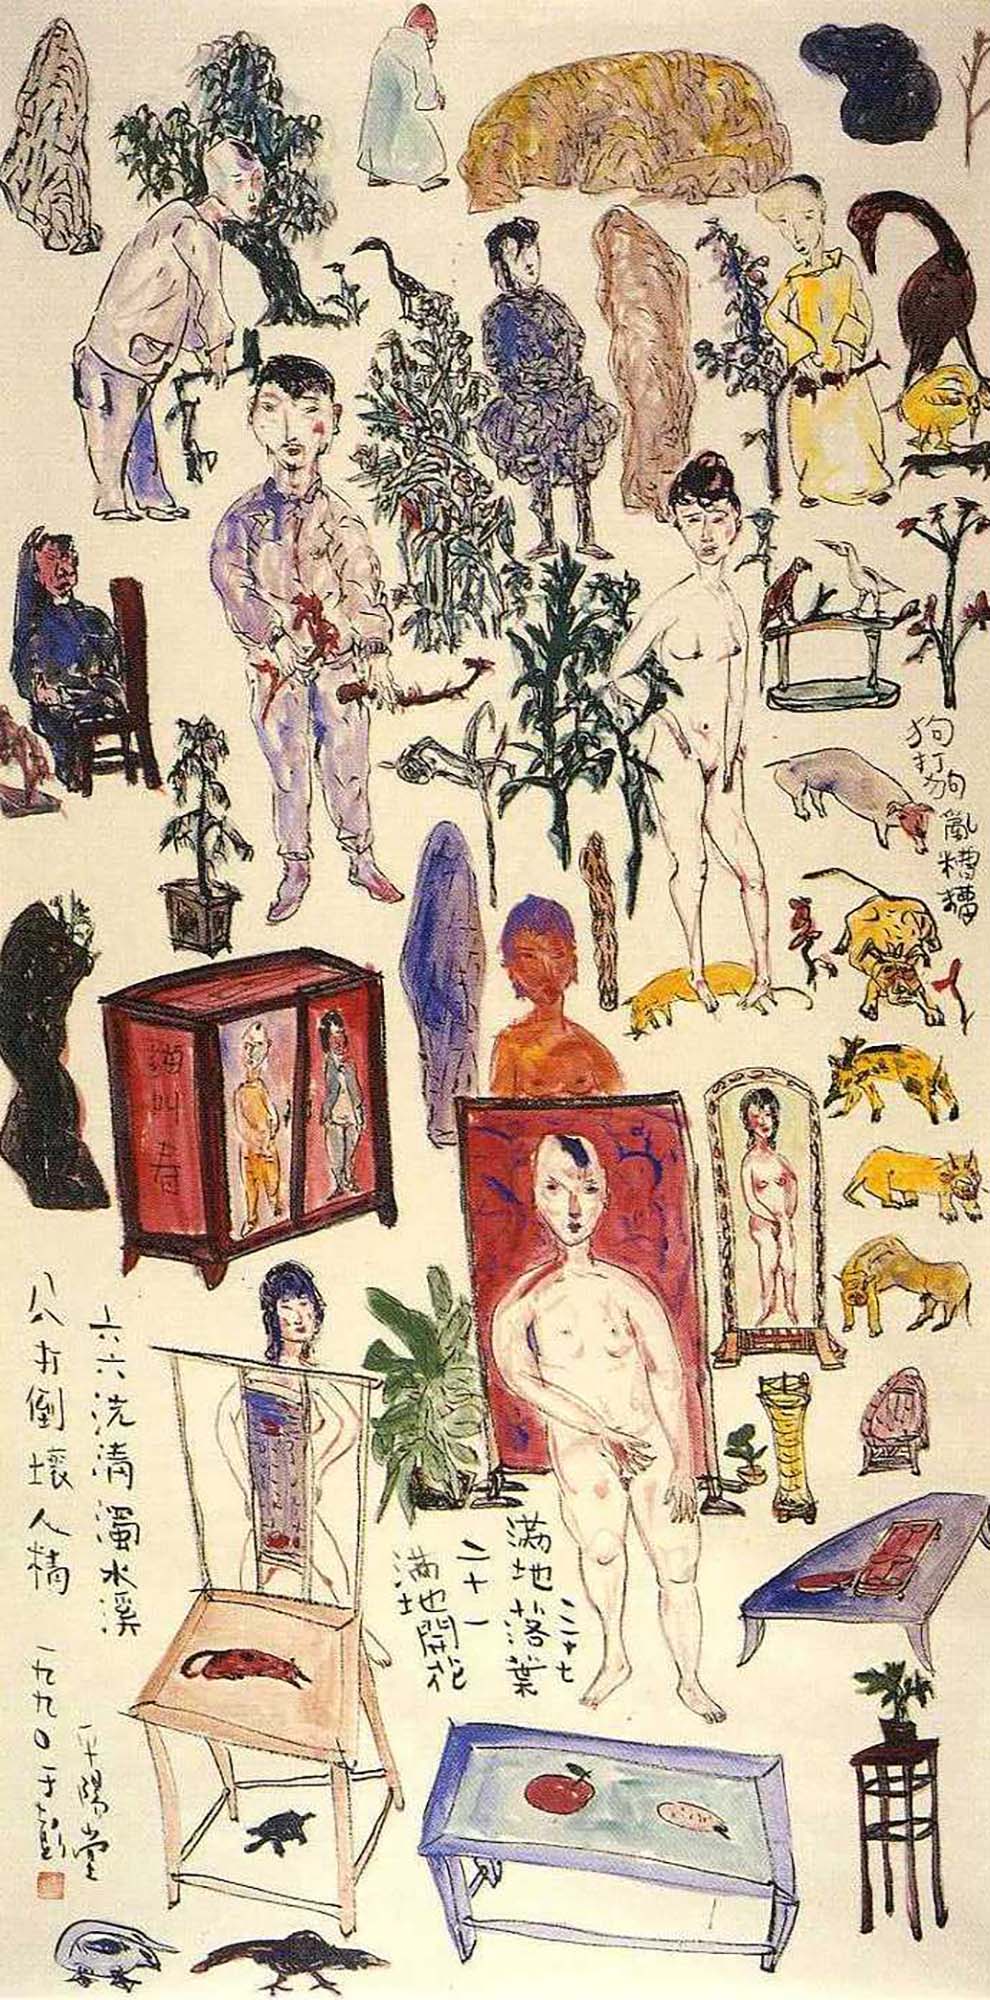 狗打狗
亂糟糟
貓叫春
三十七
滿地落葉
二十一
滿地開花
六六洗清濁水溪
八八打倒壞人精
一九九〇于彭
平陽堂